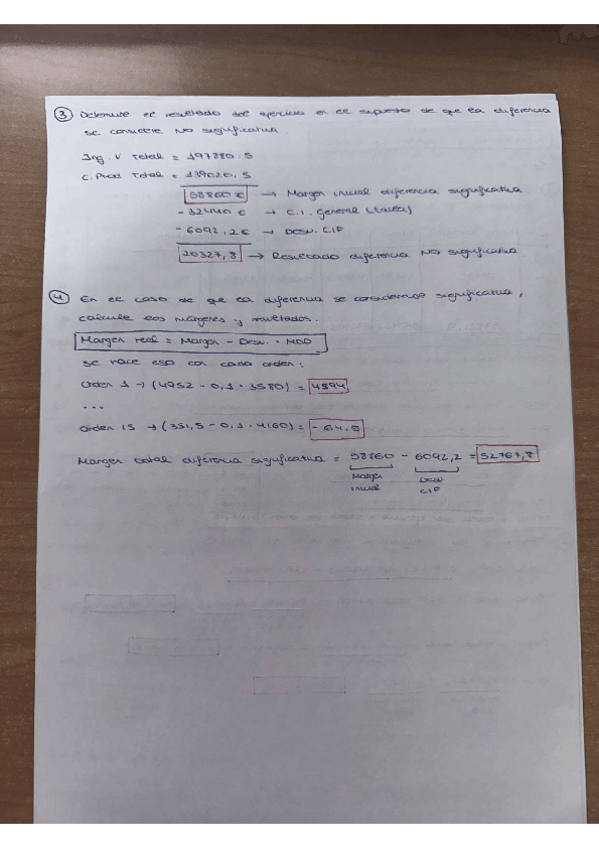 ③ Determine el resultado del ejercicio en el supuesto de que la diferencia
se considere NO significativa.
Ing. V Total = 197880,5
C. Prod Total = 139020,5
58860 € → Margen inicial diferencia significativa
- 32440 € → C.I. General (tabla)
- 6092,2 € → Desv. CIF
20327,8 → Resultado diferencia NO significativa.
④ En el caso de que la diferencia se considerase significativa,
calcule los márgenes y resultados.
Margen real = Margen - Desv. · MOD
se hace eso con cada orden:
Orden 1 → (4952 - 0,1 · 3580) = 4594
...
Orden 15 → (351,5 - 0,1 · 4160) = - 64,5
Margen total diferencia significativa = 58860 - 6092,2 = 52767,8
Margen inicial
Desv CIF